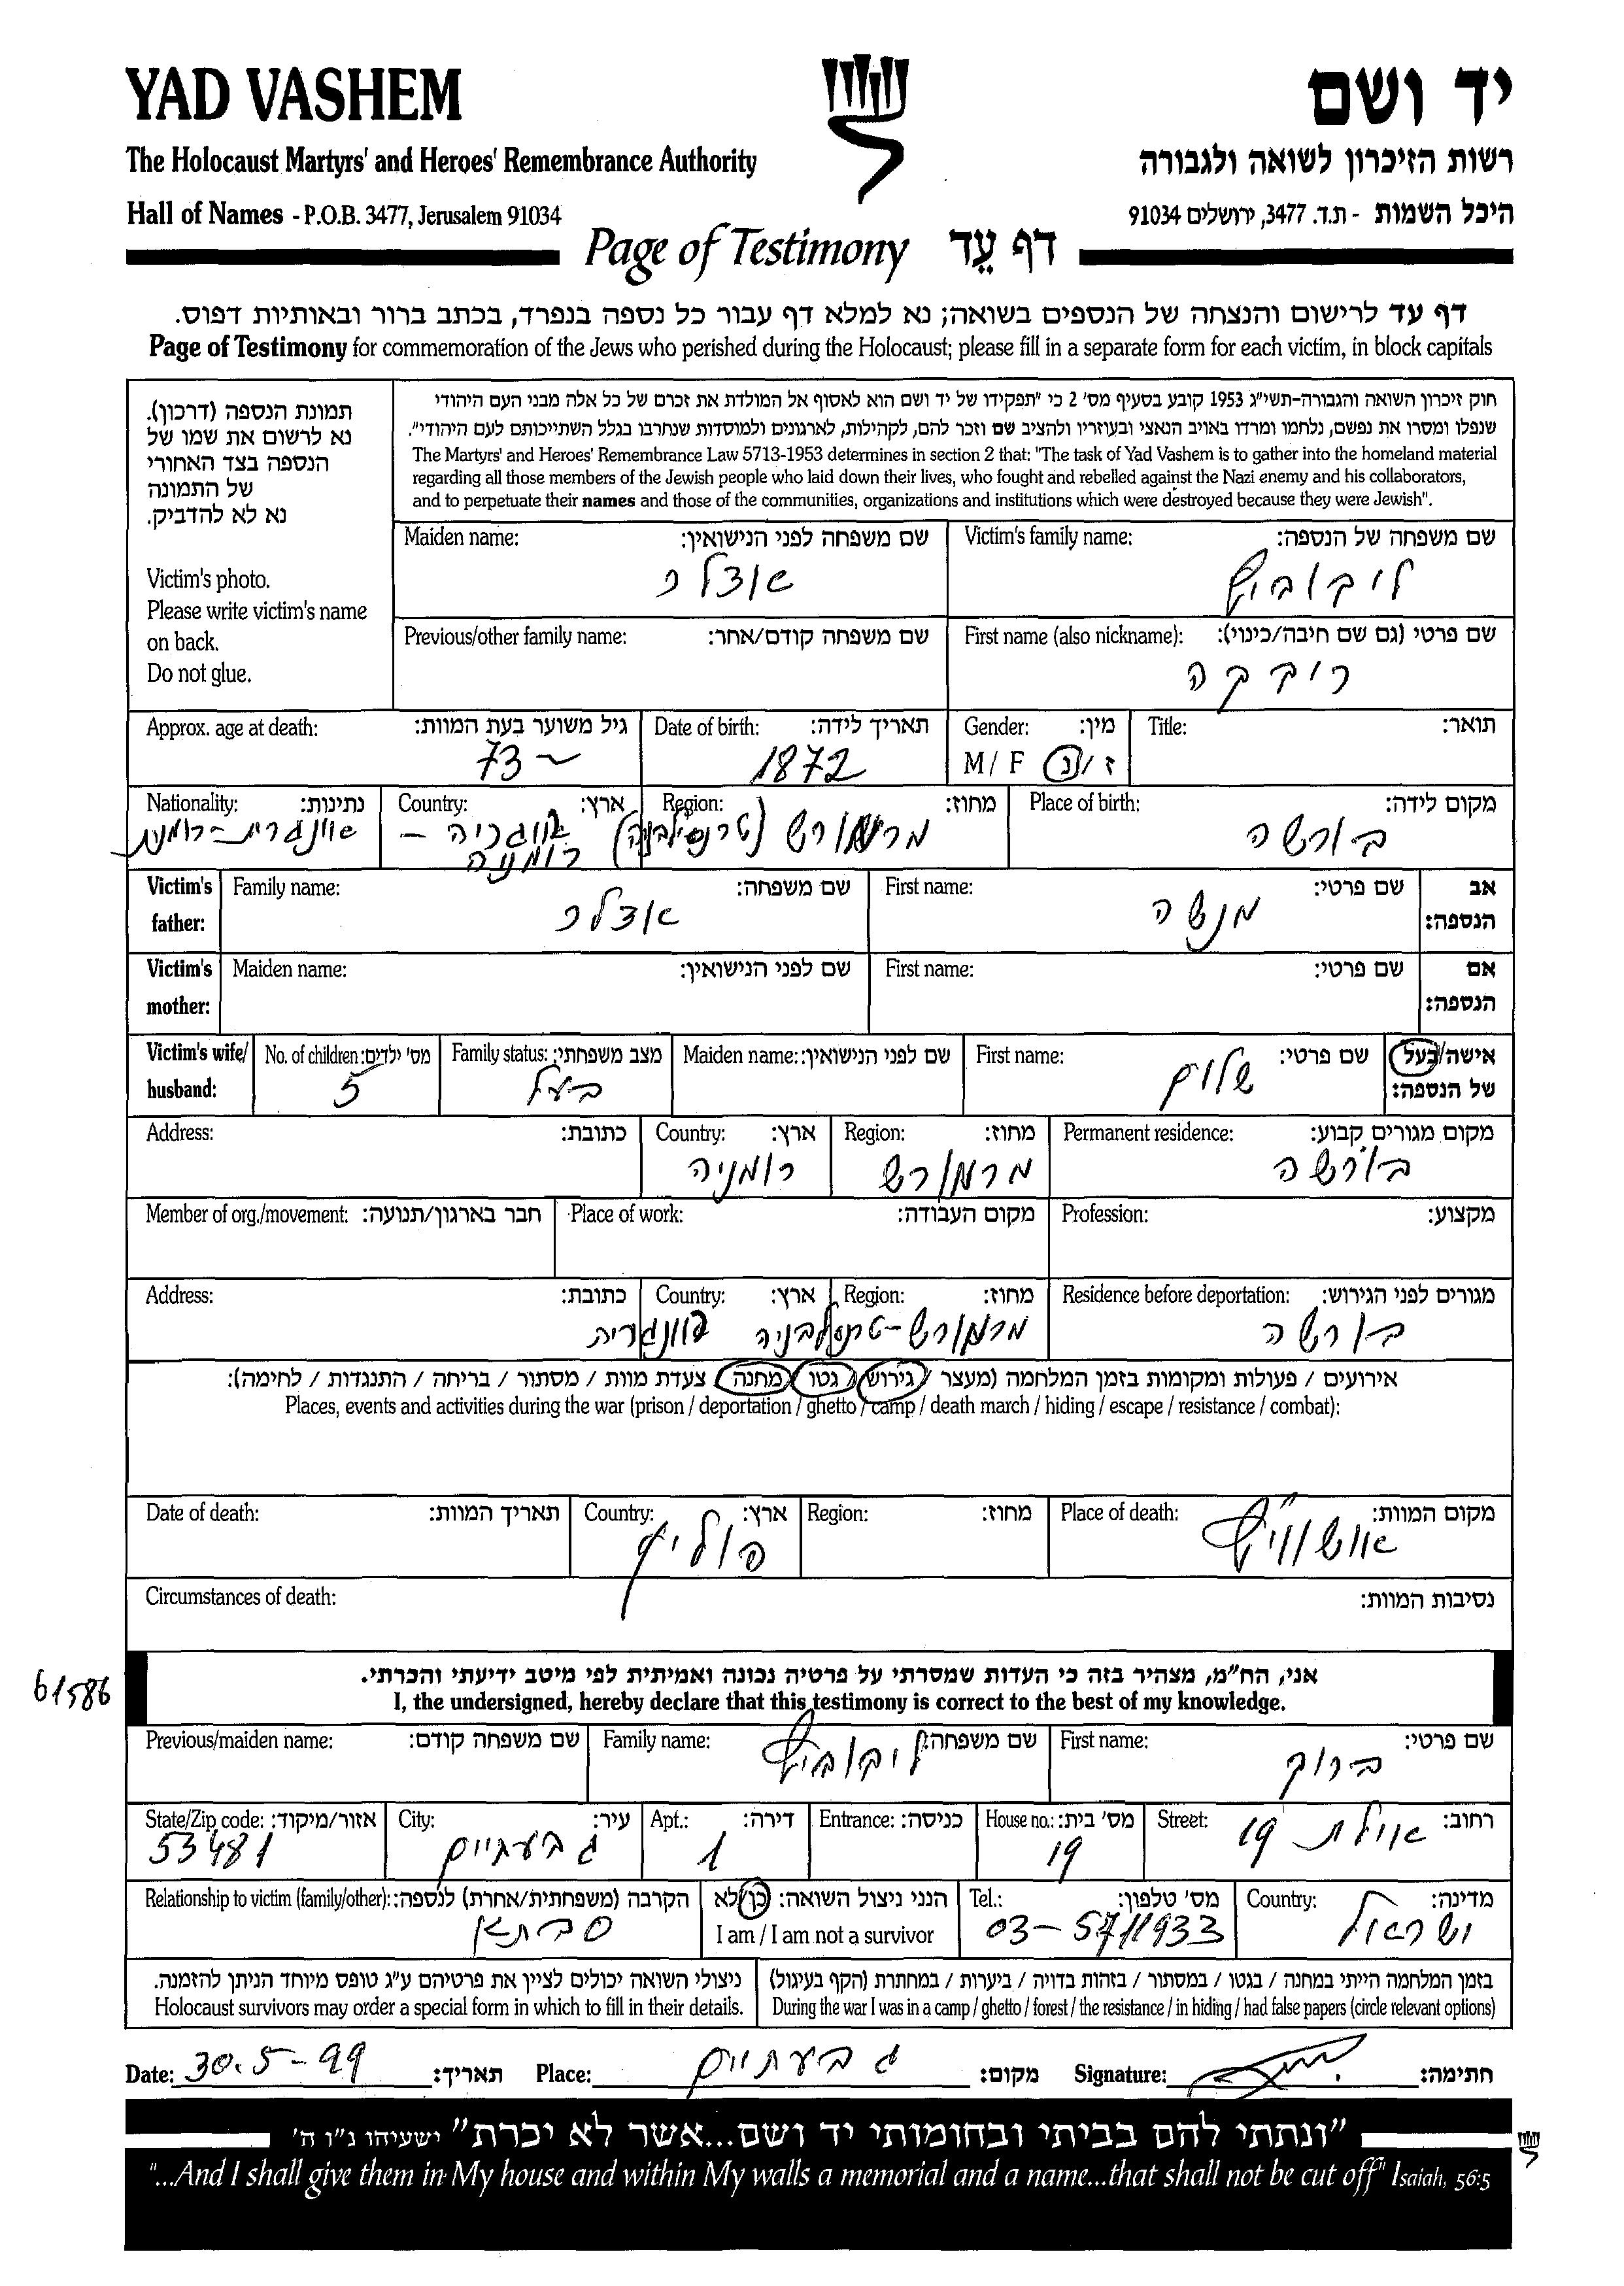 YAD VASHEM
יד ושם
The Holocaust Martyrs' and Heroes' Remembrance Authority
רשות הזיכרון לשואה ולגבורה
Hall of Names - P.O.B. 3477, Jerusalem 91034
היכל השמות - ת.ד. 3477, ירושלים 91034
Page of Testimony דף עֵד
דף עד לרישום והנצחה של הנספים בשואה; נא למלא דף עבור כל נספה בנפרד, בכתב ברור ובאותיות דפוס.
Page of Testimony for commemoration of the Jews who perished during the Holocaust; please fill in a separate form for each victim, in block capitals
תמונת הנספה (דרכון).
נא לרשום את שמו של
הנספה בצד האחורי
של התמונה
נא לא להדביק.
Victim's photo.
Please write victim's name
on back.
Do not glue.
חוק זיכרון השואה והגבורה-תשי"ג 1953 קובע בסעיף מס' 2 כי "תפקידו של יד ושם הוא לאסוף אל המולדת את זכרם של כל אלה מבני העם היהודי
שנפלו ומסרו את נפשם, נלחמו ומרדו באויב הנאצי ובעוזריו ולהציב שם וזכר להם, לקהילות, לארגונים ולמוסדות שנחרבו בגלל השתייכותם לעם היהודי".
The Martyrs' and Heroes' Remembrance Law 5713-1953 determines in section 2 that: "The task of Yad Vashem is to gather into the homeland material
regarding all those members of the Jewish people who laid down their lives, who fought and rebelled against the Nazi enemy and his collaborators,
and to perpetuate their names and those of the communities, organizations and institutions which were destroyed because they were Jewish".
Victim's family name: שם משפחה של הנספה:
ליבוביץ
Maiden name: שם משפחה לפני הנישואין:
First name (also nickname): שם פרטי (גם שם חיבה/כינוי):
רובקה
Previous/other family name: שם משפחה קודם/אחר:
Title: תואר:
Gender: מין:
M / F ז / נ
Date of birth: תאריך לידה:
1872
Approx. age at death: גיל משוער בעת המוות:
73 ~
Place of birth: מקום לידה:
בורשה
Region: מחוז:
מרמורש (טרנסילבניה)
Country: ארץ:
אונגריה -
רומניה
Nationality: נתינות:
אונגרית-רומנית
Victim's father: אב הנספה:
First name: שם פרטי:
מנשה
Family name: שם משפחה:
Victim's mother: אם הנספה:
First name: שם פרטי:
Maiden name: שם לפני הנישואין:
Victim's wife/ husband: אישה/בעל של הנספה:
First name: שם פרטי:
שלום
Maiden name: שם לפני הנישואין:
Family status: מצב משפחתי:
בעל
No. of children: מס' ילדים:
5
Permanent residence: מקום מגורים קבוע:
בורשה
Region: מחוז:
מרמורש
Country: ארץ:
רומניה
Address: כתובת:
Profession: מקצוע:
Place of work: מקום העבודה:
Member of org./movement: חבר בארגון/תנועה:
Residence before deportation: מגורים לפני הגירוש:
בורשה
Region: מחוז:
מרמורש-טרנסילבניה
Country: ארץ:
הונגרית
Address: כתובת:
אירועים / פעולות ומקומות בזמן המלחמה (מעצר / גירוש / גטו / מחנה / צעדת מוות / מסתור / בריחה / התנגדות / לחימה):
Places, events and activities during the war (prison / deportation / ghetto / camp / death march / hiding / escape / resistance / combat):
Place of death: מקום המוות:
אושוויץ
Region: מחוז:
Country: ארץ:
פולין
Date of death: תאריך המוות:
Circumstances of death: נסיבות המוות:
61586
אני, הח"מ, מצהיר בזה כי העדות שמסרתי על פרטיה נכונה ואמיתית לפי מיטב ידיעתי והכרתי.
I, the undersigned, hereby declare that this testimony is correct to the best of my knowledge.
First name: שם פרטי:
ברוך
Family name: שם משפחה:
ליבוביץ
Previous/maiden name: שם משפחה קודם:
Street: רחוב:
אילת 19
House no.: מס' בית:
19
Entrance: כניסה:
Apt.: דירה:
1
City: עיר:
גבעתיים
State/Zip code: אזור/מיקוד:
53481
Country: מדינה:
ישראל
Tel.: מס' טלפון:
03-5711933
הנני ניצול השואה: כן/לא
I am / I am not a survivor
Relationship to victim (family/other): הקרבה (משפחתית/אחרת) לנספה:
סבתא
בזמן המלחמה הייתי במחנה / בגטו / במסתור / בזהות בדויה / ביערות / במחתרת (הקף בעיגול)
During the war I was in a camp / ghetto / forest / the resistance / in hiding / had false papers (circle relevant options)
ניצולי השואה יכולים לציין את פרטיהם ע"ג טופס מיוחד הניתן להזמנה.
Holocaust survivors may order a special form in which to fill in their details.
Date: 30.5-99 תאריך: Place: גבעתיים מקום: Signature: חתימה:
"ונתתי להם בביתי ובחומותי יד ושם...אשר לא יכרת" ישעיהו נ"ו ה'
"...And I shall give them in My house and within My walls a memorial and a name...that shall not be cut off" Isaiah, 56:5